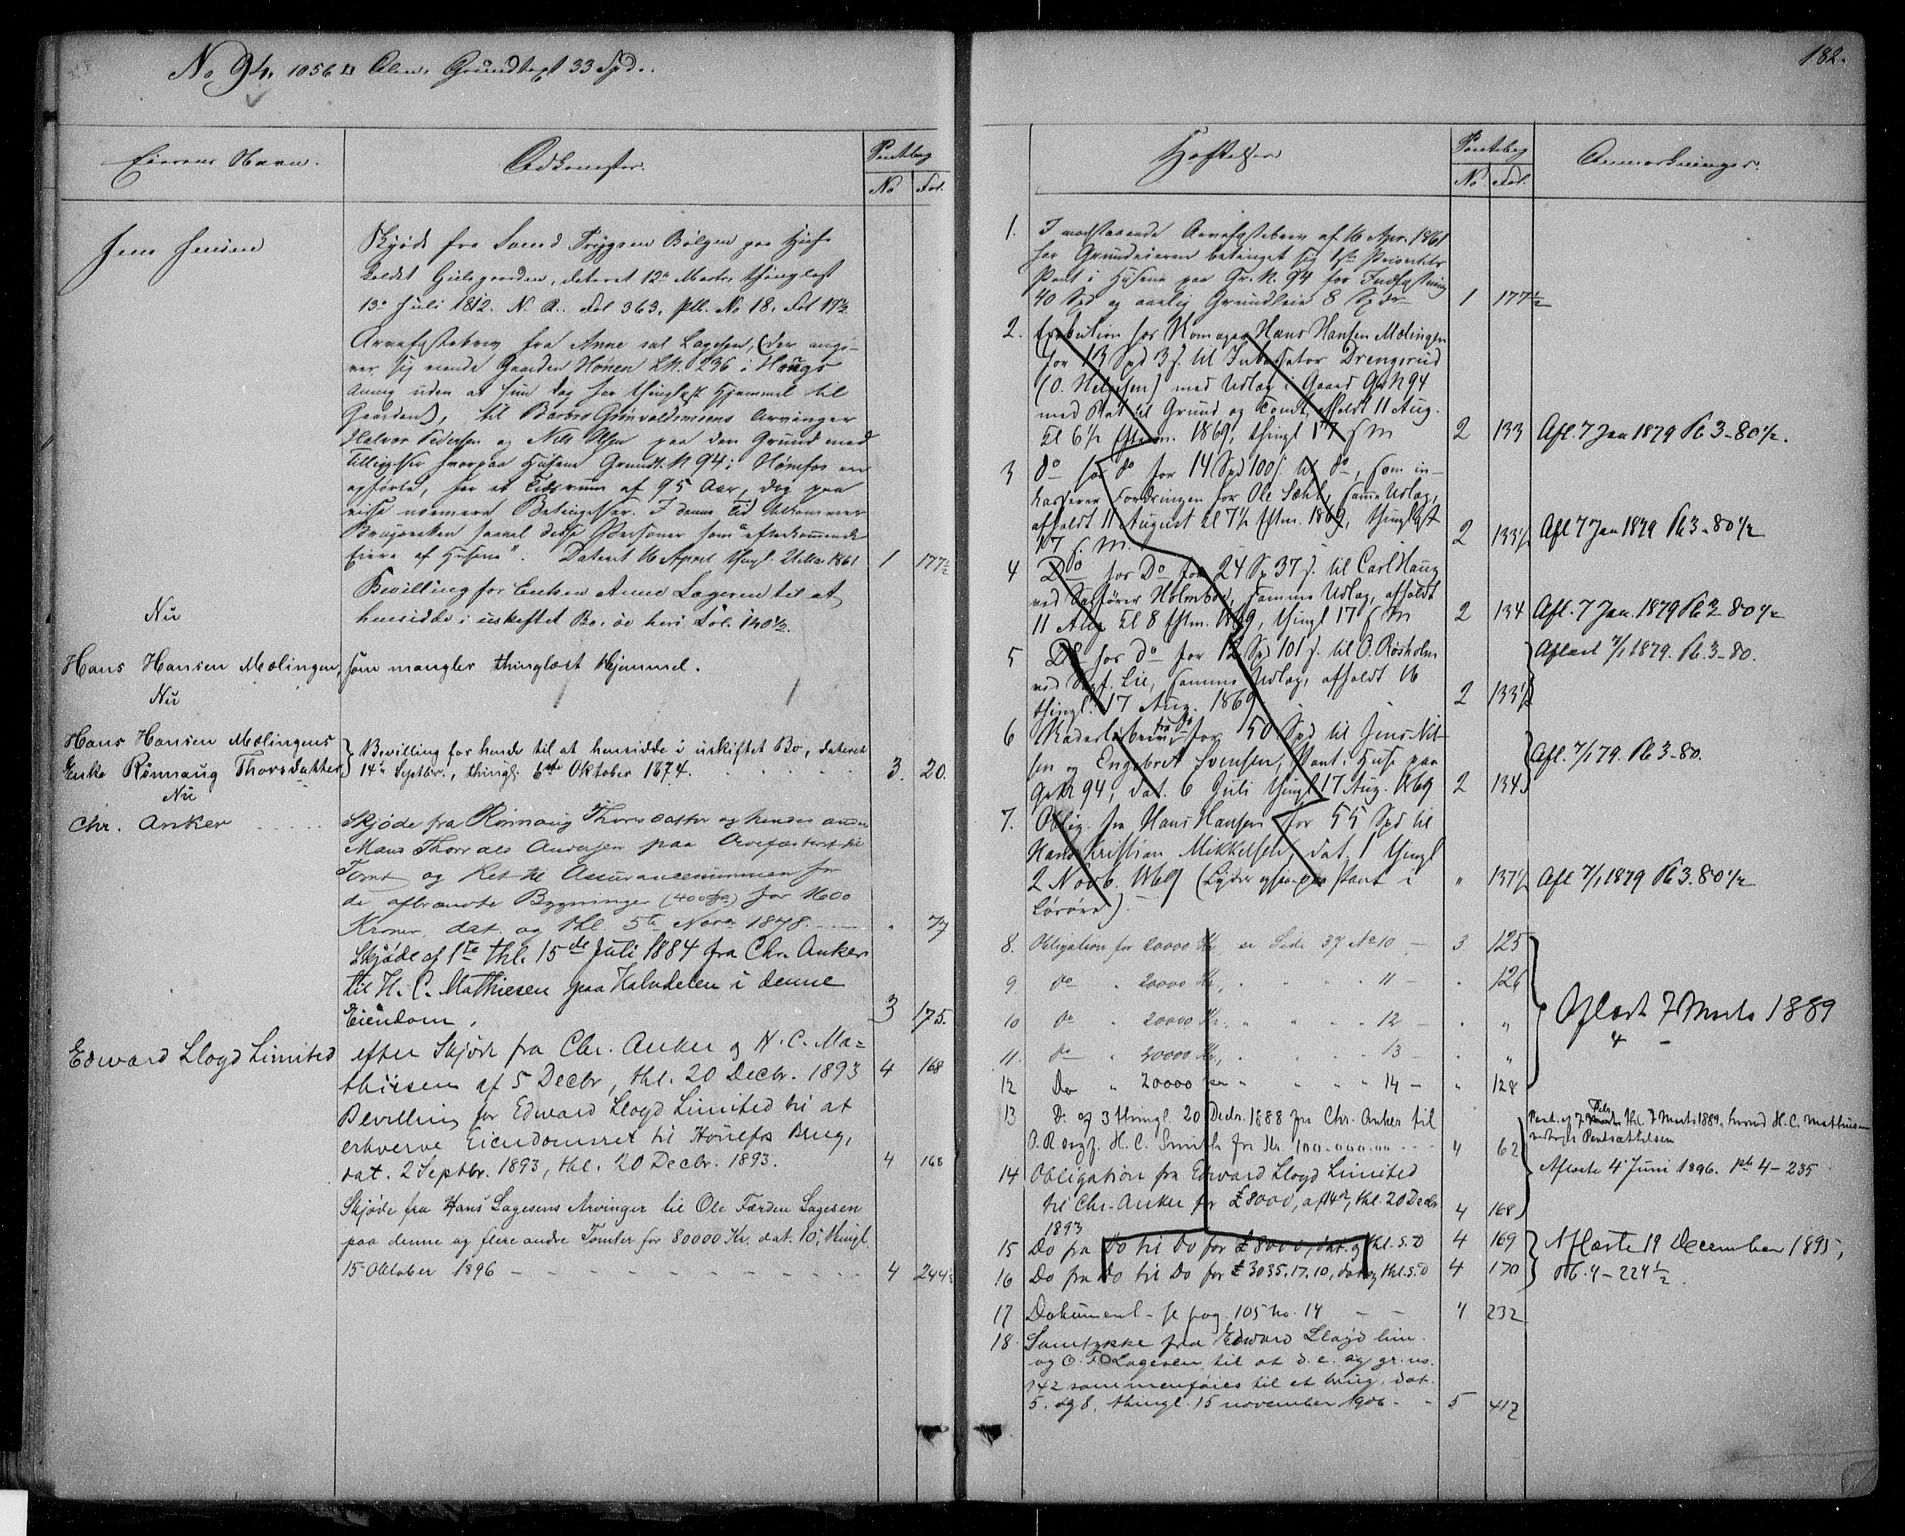 182.
No 94. 1056 □ Alen. Grundtaxt 33 Spd.
Eierens Navn.
Adkomster.
Pantebog
No Fol.
Jens Jensen
Skjøde fra Svend Tryggsen Bølgen paa Huse
kaldet Gulsgaarden, dateret 12te Marts, thinglæst
13de Juli 1812. N. R. Fol 363, ptb. No 18. Fol 17½
Arvefæstebrev fra Anne sal Lagesen, (der angi-
ver sig eiende Gaarden Hønen LN. 236 i Hougs
Annex uden at hun dog har thinglæst Hjemmel til
Gaarden), til Barbro Arvinger
Halvor Pedersen og Nils Olsen paa den Grund med
Tilliggelse hvorpaa Husene Grundt. N 94 i Hønefos er
opførte, for et Tidsrum af 95 Aar, dog paa
visse nærmere Betingelser. I denne Tid tilkommer
Brugsretten saavel disse Personer som "efterkommende
Eiere af Husene". Dateret 16 April thingl. 1861 1 177½
Bevilling for Enken Anne Lagesen til at
hensidde i uskiftet Bo, se heri Fol. 140½.
Nu
Hans Hansen Mælingen, som mangler thinglæst Hjemmel.
Nu
Hans Hansen Mælingens
Enke Rønnaug Thorsdatter
Bevilling for hende til at hensidde i uskiftet Bo, dateret
14de Septbr., thingl. 6te Oktober 1874. 3. 20.
Nu
Chr. Anker
Skjøde fra Rønnaug Thorsdatter og hendes anden
Mand Thorvals Andersen paa Arvefæsteret til
Tomt og Ret til Assurancesummen for
de afbrændte Bygninger (400 Spd) for 1600
Kroner, dat. og thl. 5te Novr 1878. " 77
Skjøde af 1ste thl. 15de Juli 1884 fra Chr. Anker
til H. C. Mathiesen paa Halvdelen i denne
Eiendom. 3 175.
Edward Lloyd Limited
efter Skjøde fra Chr. Anker og H. C. Ma-
thiesen af 5 Decbr, thl. 20 Decbr. 1893 4 168
Bevilling for Edward Lloyd Limited til at
erhverve Eiendomsret til Hønefos Brug,
dat. 2 Septbr. 1893, thl. 20 Decbr. 1893. 4 168
Skjøde fra Hans Lagesens Arvinger til Ole Færden Lagesen
paa denne og flere andre Tomter for 80000 Kr. dat. 10, thingl.
15 Oktober 1896 4 244½
Hæftelser
Pantebog
No Fol.
Anmærkninger.
1. I modstaaende Arvefæstebrev af 16 Apr. 1861
har Grundeieren betinget sig 1ste Prioritets
Pant i Husene paa Gr. N. 94 for Indfæstning
40 Spd og aarlig Grundleie 8 Spdr 1 177½
2. Exekution hos Hans Hansen Mælingen
for 13 Spd 3 s. til Inkassator Drengsrud
(O. Helgesen) med Udlæg i Gaard GrN 94
med Ret til Grund og Tomt, afholdt 11 Aug.
kl 6½ Eftm. 1869, thingl 17 s M 2 133 Afl. 7 Jan 1879 Pb 3-80½.
3 do hos do for 14 Spd 100 s til do, som in-
kasserer Fordringen for Ole Sæhl, samme Udlæg,
afholdt 11 August kl 7½ Eftm. 1869, thinglæst
17 s. M. 2 133½ Afl 7 Jan 1879 Pb 3-80½
4 Do hos Do for 24 Sp 37 s. til Carl Haug
ved Sagfører Holmboe, samme Udlæg, afholdt
11 Aug kl 8 Eftm. 1869, thingl 17 s M 2 134 Afl. 7 Jan. 1879 Pb 3-80½
5 Do hos do for 12 Spd 101 s. til O. Røsholm
ved Sagf. Lie, samme Udlæg, afholdt 16
thingl. 17 Aug. 1869 2 133½ Aflæst 7/1 1879. Pb. 3-80.
6 Skadesløsbrev fra do for 150 Spd til Jens Nil-
sen og Engebret Svensen, Pant i Huse paa
GrN 94, dat. 6 Juli thingl 17 Aug. 1869 2 134 Afl. 7/1 79. Pb 3-80.
7. Oblig. fra Hans Hansen for 55 Spd til
Hans Kristian Mikkelsen, dat 1 thingl
2 Novb. 1869 (Lyder ogsaa paa Pant i
Løsøre) " 137½ Afl 7/1 1879 Pb 3. 80½
8. Obligation for 20000 Kr, se Side 37 No 10 3. 125
9. do " 20000 Kr, " " " 11 " 126
10 do " 20000 Kr, " " " 12 " "
11. do " 20000 Kr, " " " 13 " "
12 Do " 20000 Kr " " " 14 " 128
Aflæst 7 Marts 1889
13 Do af 3 thingl. 20 Decbr. 1888 fra Chr. Anker til
O. R. sagf. H. C. Smith for Kr. 100.000.00 4 62
Pant. af 7 Febr. thl. 7 Marts 1889, hvorved H. C. Mathiesen
vedtager Pantsættelsen
Aflæste 4 Juni 1896. Pb 4-235
14 Obligation fra Edward Lloyd Limited
til Chr. Anker for £8000, af 14de, thl. 20 Decbr
1893 4 168
15 Do fra Do til Do for £8000, dat. og thl. S. D 4 169
16 Do fra Do til Do for £3035.17.10, dat og thl. S. D 4 170
Aflæste 19 December 1895,
Pb. 4-224½.
17 Dokument - se pag. 105 No. 14 4 232
18. Samtykke fra Edward Lloyd lim.
og O. F. Lagesen til at d. e. og gr. no.
142 sammenføies til et brug, dat.
5. og 8. thingl. 15 november 1906 5 417